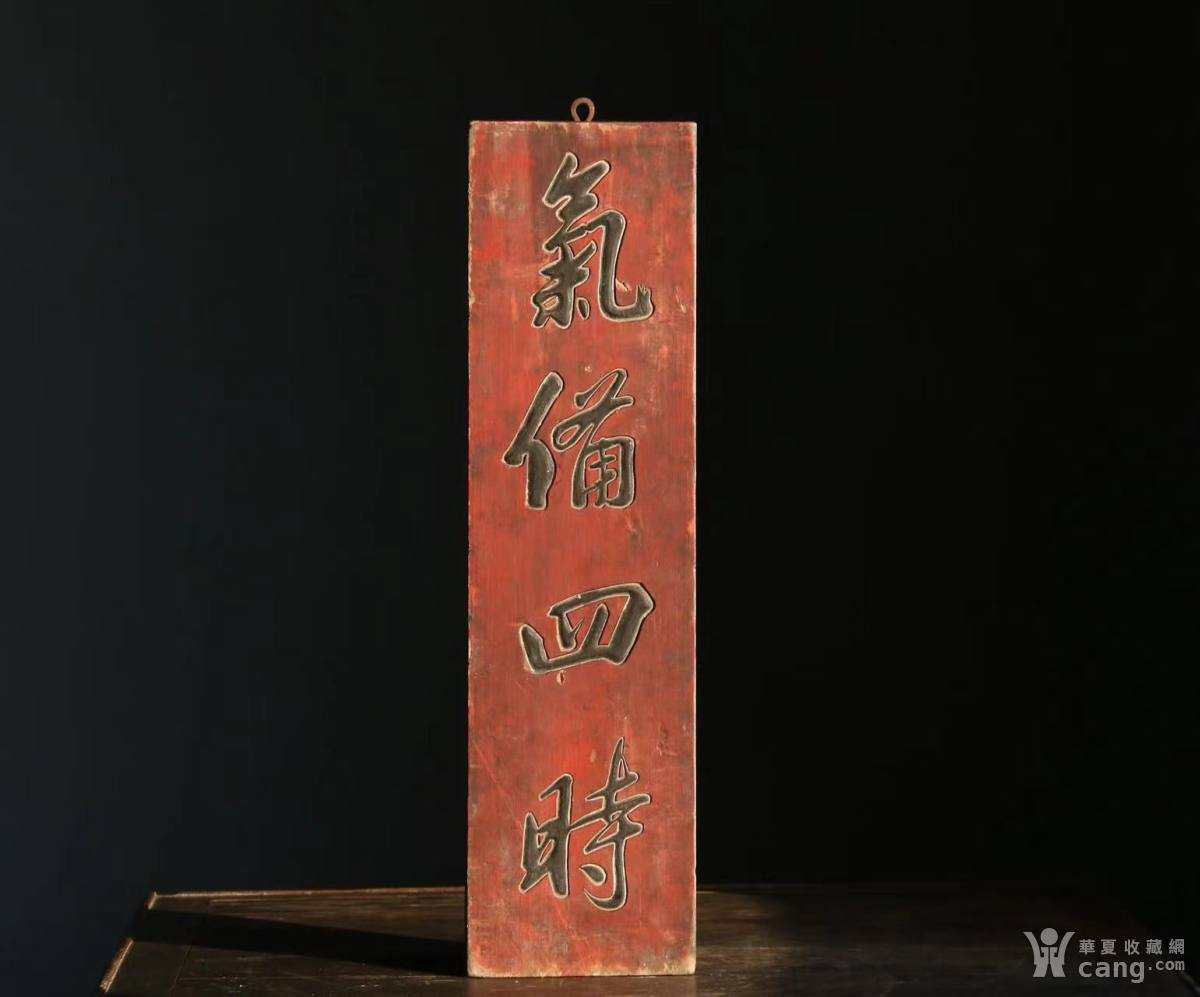 氣備四時
華夏收藏網
cang.com